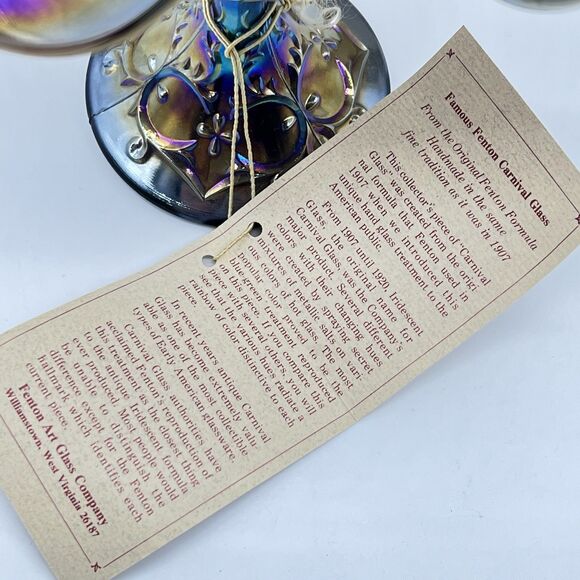 Famous Fenton Carnival Glass
From the Original Fenton Formula
Handmade in the same
fine tradition as it was in 1907
This collector's piece of "Carnival
Glass" was created from the origi-
nal formula that Fenton used in
1907 when we introduced this
unique hand glass treatment to the
American public.
From 1907 until 1920, Iridescent
Glass, the original name for
Carnival Glass, was the Company's
major product. Several different
colors with their changing hues
were created by spraying secret
mixtures of metallic salts on vari-
ous colors of hot glass. The most
popular color proved to be the
green treatment reproduced
on this piece. If you compare this
piece with several others, you will
see that the various hues radiate a
rainbow of color distinctive to each
In recent years antique Carnival
Glass has become extremely valu-
able as one of the most collectible
types of Early American glassware.
Carnival Glass authorities have
acclaimed Fenton's reproduction of
this treatment as the closest thing
to the antique Iridescent formula
ever produced. Most people would
be unable to distinguish the
difference except for the Fenton
hallmark which identifies each
current piece.
Fenton Art Glass Company
Williamstown, West Virginia 26187